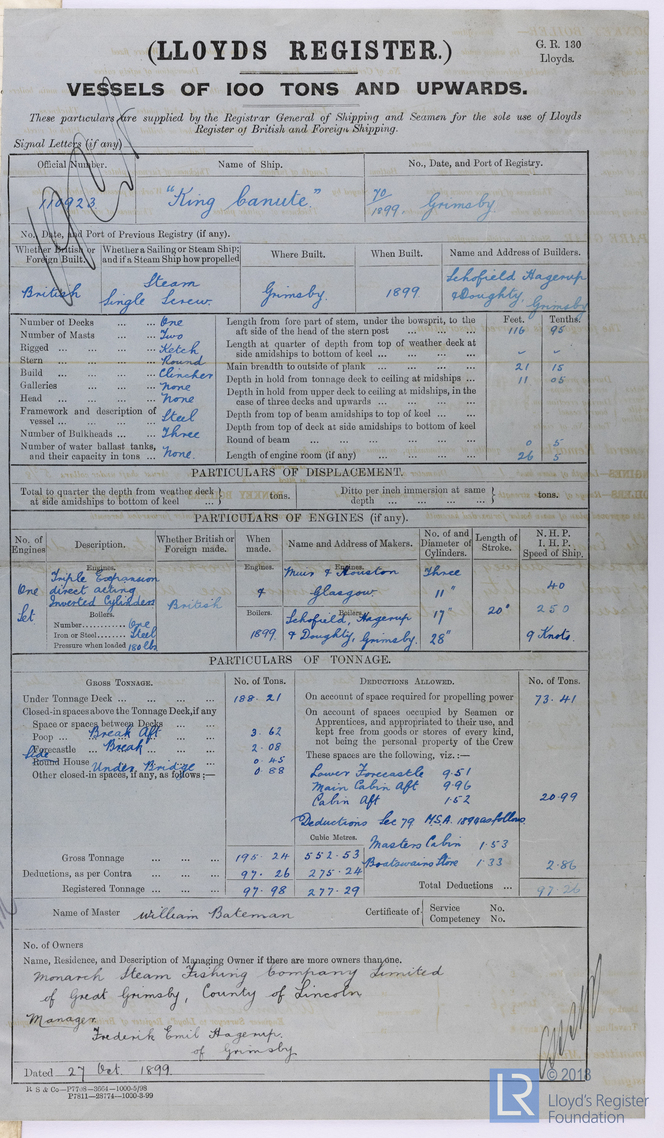 (LLOYDS REGISTER.)
G. R. 130
Lloyds.
VESSELS OF 100 TONS AND UPWARDS.
These particulars are supplied by the Registrar General of Shipping and Seamen for the sole use of Lloyds
Register of British and Foreign Shipping.
Signal Letters (if any)
Official Number. Name of Ship. No., Date, and Port of Registry.
110923 "King Canute." 70/1899. Grimsby.
No., Date, and Port of Previous Registry (if any).
Whether British or Foreign Built. Whether a Sailing or Steam Ship; and if a Steam Ship how propelled Where Built. When Built. Name and Address of Builders.
British Steam Single Screw. Grimsby. 1899 Schofield Hagerup & Doughty, Grimsby
Feet. Tenths.
Number of Decks ... ... One
Number of Masts ... ... Two
Rigged ... ... ... ... Ketch
Stern ... ... ... ... Round
Build ... ... ... ... Clincher
Galleries ... ... ... None
Head ... ... ... ... None
Framework and description of vessel ... ... ... ... Steel
Number of Bulkheads ... ... Three
Number of water ballast tanks, and their capacity in tons ... None.
Length from fore part of stem, under the bowsprit, to the aft side of the head of the stern post ... ... ... 116 95
Length at quarter of depth from top of weather deck at side amidships to bottom of keel ... ... ... - -
Main breadth to outside of plank ... ... ... ... 21 15
Depth in hold from tonnage deck to ceiling at midships ... 11 05
Depth in hold from upper deck to ceiling at midships, in the case of three decks and upwards ... ... ...
Depth from top of beam amidships to top of keel ... ...
Depth from top of deck at side amidships to bottom of keel
Round of beam ... ... ... ... ... 0 5
Length of engine room (if any) ... ... ... ... 26 5
PARTICULARS OF DISPLACEMENT.
Total to quarter the depth from weather deck at side amidships to bottom of keel ... } tons. Ditto per inch immersion at same depth ... ... ... ... } tons.
PARTICULARS OF ENGINES (if any).
No. of Engines Description. Whether British or Foreign made. When made. Name and Address of Makers. No. of and Diameter of Cylinders. Length of Stroke. N. H. P. I. H. P. Speed of Ship.
Engines. Engines. Engines.
One Set
Triple Expansion
direct acting
Inverted Cylinders
British
&
Muir & Houston
Glasgow
Three
11"
40
Boilers. Boilers. Boilers.
Number......... One
Iron or Steel...... Steel
Pressure when loaded 180 lbs
1899
Schofield, Hagerup
& Doughty, Grimsby.
17"
28"
20"
250
9 Knots
PARTICULARS OF TONNAGE.
GROSS TONNAGE. No. of Tons. DEDUCTIONS ALLOWED. No. of Tons.
Under Tonnage Deck ... ... ... ... 188. 21
Closed-in spaces above the Tonnage Deck, if any
Space or spaces between Decks ... ...
Poop ... Break Aft 3. 62
Forecastle ... Break ... 2. 08
Side
Round House Under Bridge 0. 45
Other closed-in spaces, if any, as follows:— 0. 88
Gross Tonnage ... ... ... 195. 24 552. 53
Deductions, as per Contra ... ... ... 97. 26 275. 24
Registered Tonnage ... ... ... 97. 98 277. 29
On account of space required for propelling power 73. 41
On account of spaces occupied by Seamen or
Apprentices, and appropriated to their use, and
kept free from goods or stores of every kind,
not being the personal property of the Crew
These spaces are the following, viz.:—
Lower Forecastle 9.51
Main Cabin Aft 9.96
Cabin Aft 1.52 20.99
Deductions Sec 79 M.S.A. 1894 as follows
Cubic Metres.
Masters Cabin 1.53
Boatswains Store 1.33 2.86
Total Deductions ... 97.26
Name of Master William Bateman Certificate of { Service No. Competency No.
No. of Owners
Name, Residence, and Description of Managing Owner if there are more owners than one.
Monarch Steam Fishing Company Limited
of Great Grimsby, County of Lincoln
Manager
Frederik Emil Hagerup.
of Grimsby
Dated 27 Oct. 1899.
R S & Co—P7798—3664—1000-5/98
P7811—28774—1000-3-99
LR
© 2018
Lloyd's Register
Foundation